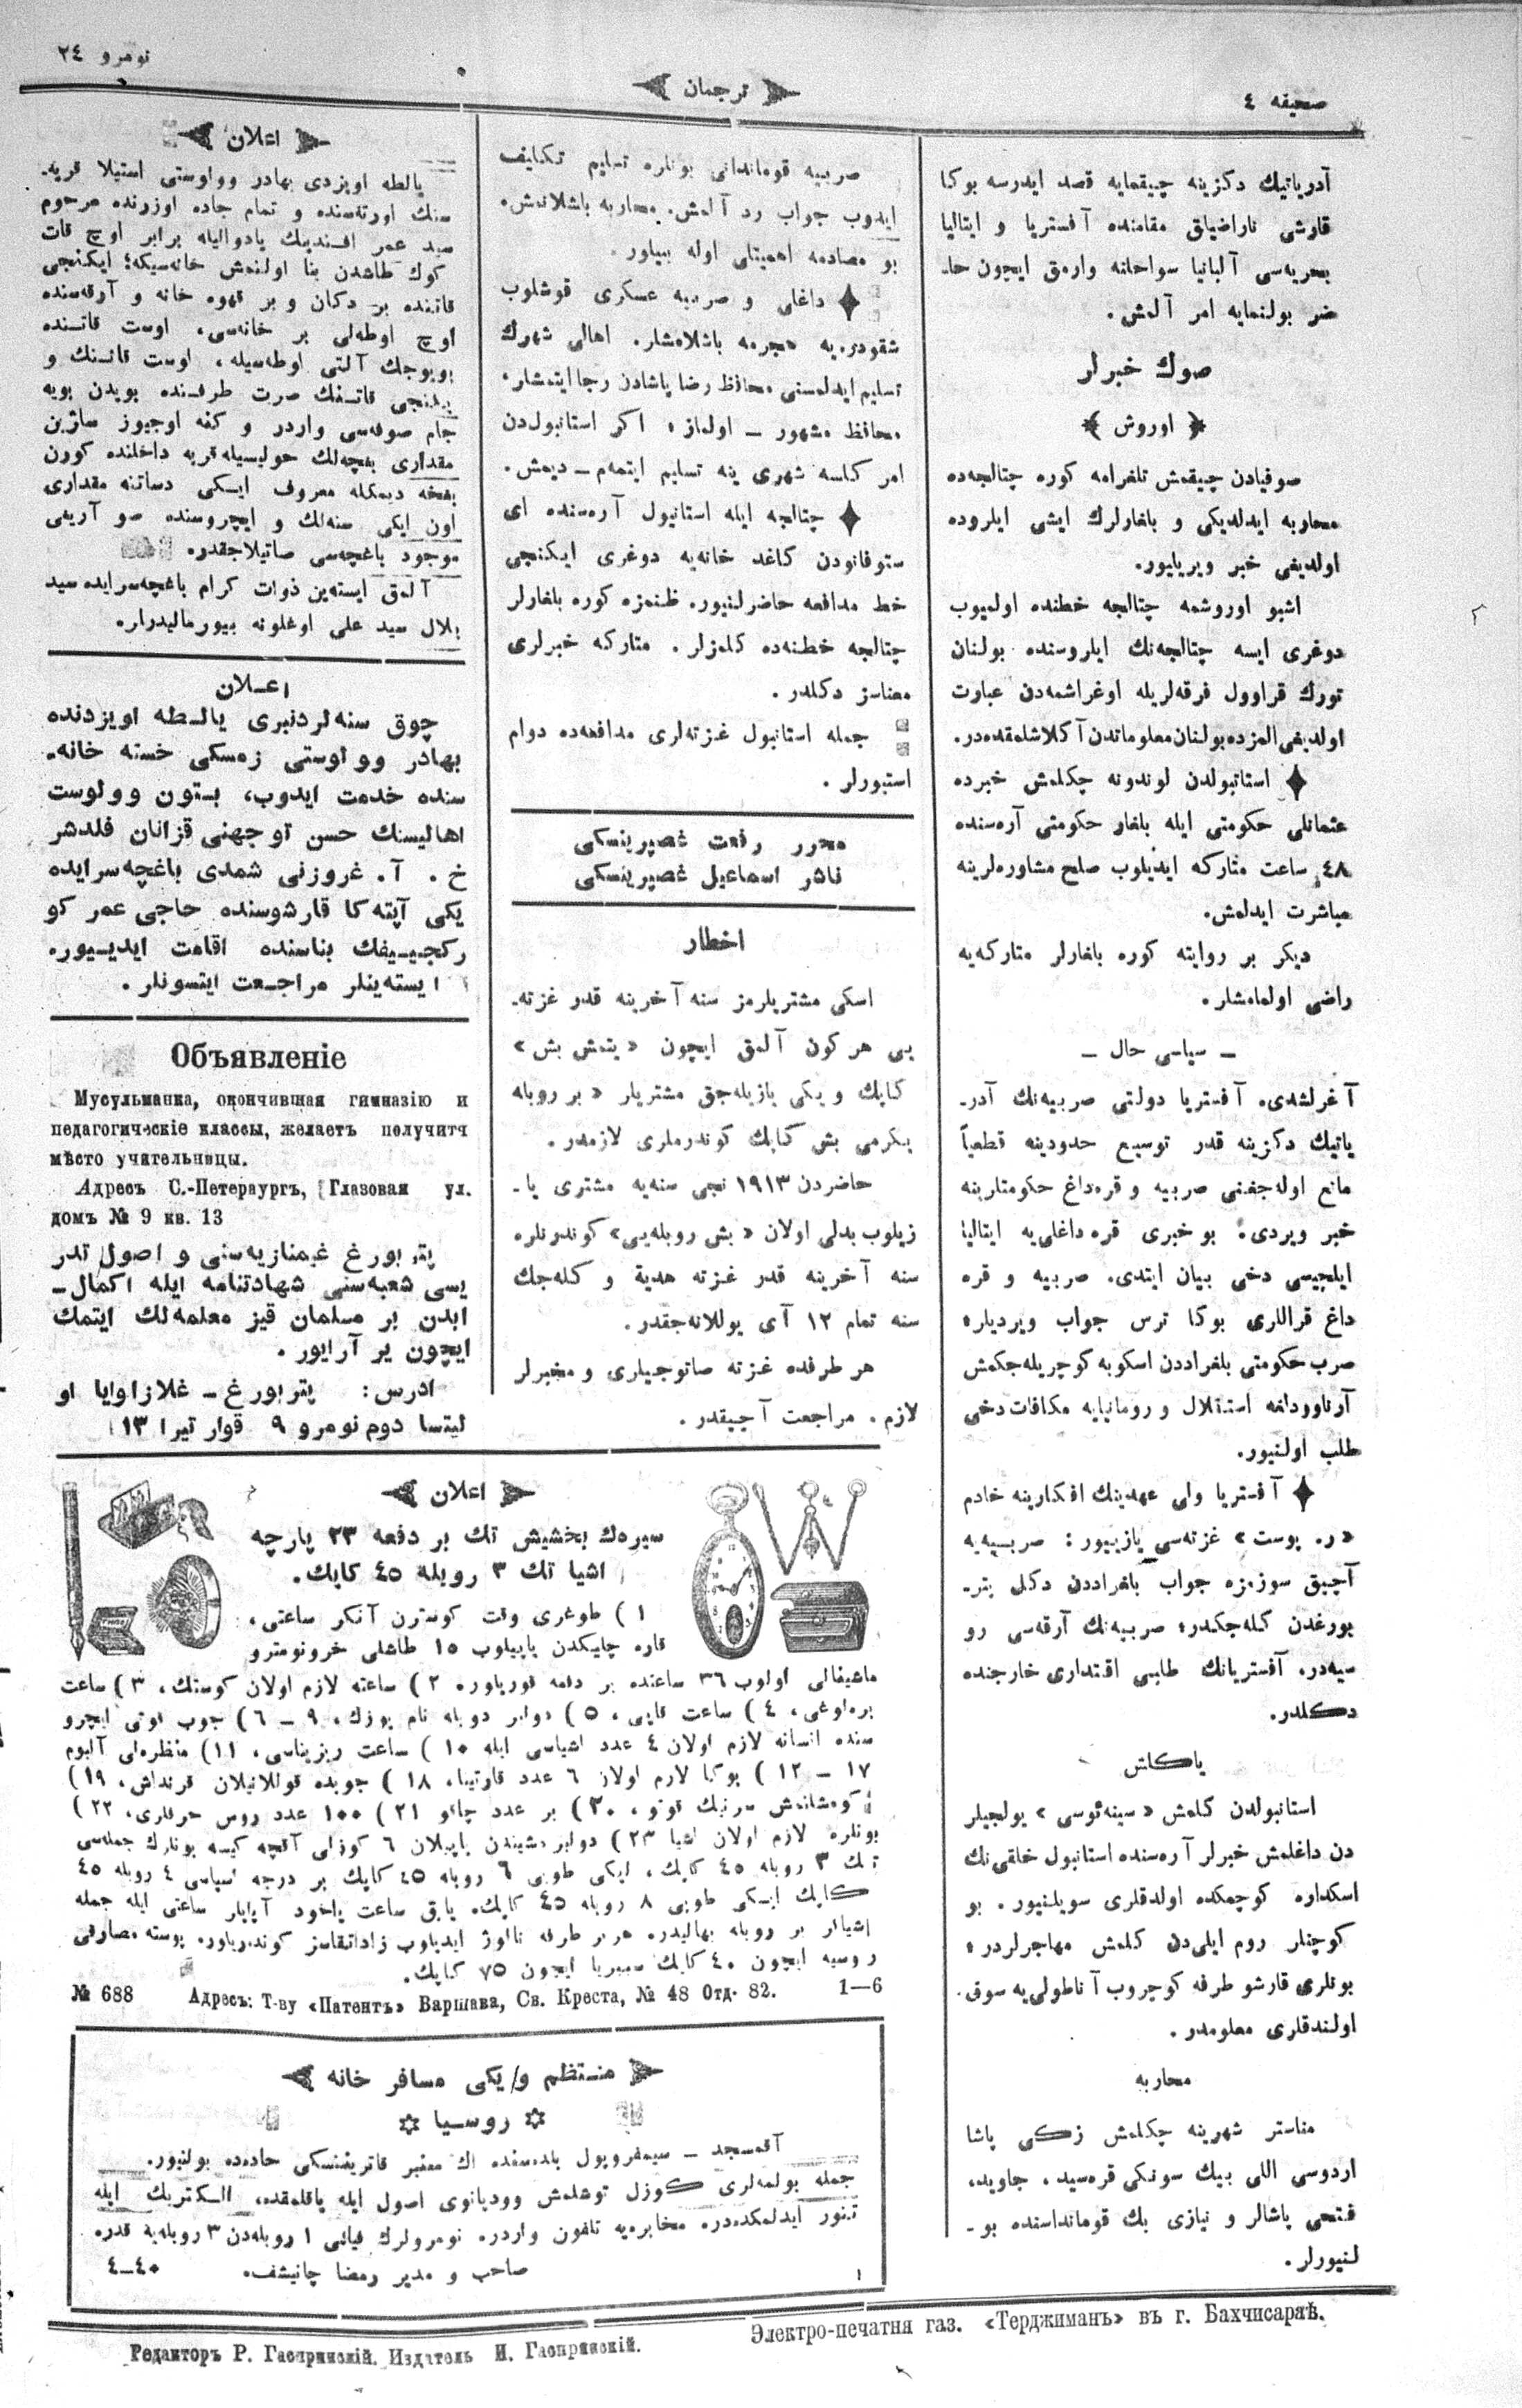 صحیفه ٤
ترجمان
نومرو ٢٤
آدریاتیك دكزینه چیقمایه قصد ایدرسه بوكا
قارشی ناراضیلق مقامنده آفستریا و ایتالیا
بحریه‌سی آلبانیا سواحلنه وارمق ایچون حا-
ضر بولنمایه امر آلمش.
صوك خبرلر
اوروش
صوفیادن چیقمش تلغرامه كوره چتالجه‌ده
محاربه ایدلدیكی و بلغارلرك ایشی ایلروده
اولدیغی خبر ویریلیور.
اشبو اوروشمه چتالجه خطنده اولمیوب
دوغری ایسه چتالجه‌نك ایلروسنده بولنان
تورك قراوول فرقه‌لریله اوغراشمه‌دن عبارت
اولدیغی المزده بولنان معلوماتدن آكلاشلمقده‌در.
استانبولدن لوندونه چكلمش خبرده
عثمانلی حكومتی ایله بلغار حكومتی آره‌سنده
٤٨ ساعت متاركه ایدیلوب صلح مشاوره‌لرینه
مباشرت ایدلمش.
دیكر بر روایته كوره بلغارلر متاركه‌یه
راضی اولمامشلر.
— سیاسی حال —
آغرلشدی. آفستریا دولتی صربیه‌نك آدر-
یاتیك دكزینه قدر توسیع حدودینه قطعیاً
مانع اوله‌جغنی صربیه و قره‌داغ حكومتلرینه
خبر ویردی؛ بو خبری قره داغلی‌یه ایتالیا
ایلچیسی دخی بیان ایتدی. صربیه و قره
داغ قراللری بوكا ترس جواب ویردیلر؛
صرب حكومتی بلغراددن اسكوبه كوچریله‌جكمش
آرناوودلغه استقلال و رومانیایه مكافات دخی
طلب اولنیور.
آفستریا ولی عهدینك افكارینه خادم
«ر. پوست» غزته‌سی یازییور: صربیه‌یه
آچیق سوزمزه جواب بلغراددن دكل پتر-
بورغدن كله‌جكدر؛ صربیه‌نك آرقه‌سی رو
سیه‌در. آفستریانك طلبی اقتداری خارجنده
دكلدر.
یاكلش
استانبولدن كلمش «سینه‌ئوسی» یولجیلر
دن داغلمش خبرلر آره‌سنده استانبول خلقی‌نك
اسكداره كوچمكده اولدقلری سویلنیور. بو
كوچنلر روم ایلی‌دن كلمش مهاجرلردر؛
بونلری قارشو طرفه كوچروب آناطولی‌یه سوق
اولندقلری معلومدر.
محاربه
مناستر شهرینه چكلمش زكی پاشا
اردوسی اللی بیك سونكی قره‌سید، جاوید،
فتحی پاشالر و نیازی بك قومانداسنده بو-
لنیورلر.
صربیه قوماندانی بونلره تسلیم تكلیف
ایدوب جواب رد آلمش. محاربه باشلانمش.
بو مصادمه اهمیتلی اوله بیلور.
داغلی و صربیه عسكری قوشلوب
شقودره‌یه هجومه باشلامشلر. اهالی شهرك
تسلیم ایدلمسنی محافظ رضا پاشادن رجا ایتمشلر.
محافظ مشهور — اولماز؛ اكر استانبول‌دن
امر كلسه شهری ینه تسلیم ایتمم — دیمش.
چتالجه ایله استانبول آره‌سنده ای
ستوفانودن كاغد خانه‌یه دوغری ایكنجی
خط مدافعه حاضرلنیور. ظنمزه كوره بلغارلر
چتالجه خطنه‌ده كلمزلر. متاركه خبرلری
معناسز دكلدر.
جمله استانبول غزته‌لری مدافعه‌ده دوام
استیورلر.
محرر رفعت غصپرینسكی
ناشر اسماعیل غصپرینسكی
اخطار
اسكی مشتریلرمز سنه آخرینه قدر غزته-
یی هر كون آلمق ایچون «یتمش بش»
كاپك و یكی یازیله‌جق مشتریلر «بر روبله
یكرمی بش كاپك كوندرملری لازمدر.
حاضردن ١٩١٣ نجی سنه‌یه مشتری یا-
زیلوب بدلی اولان «بش روبله‌یی» كوندرنلره
سنه آخرینه قدر غزته هدیة و كله‌جك
سنه تمام ١٢ آی یوللانه‌جقدر.
هر طرفده غزته صاتوجیلری و مخبرلر
لازم. مراجعت آچیقدر.
اعلان
یالطه اویزدی بهادر وولوستی استیلا قریه-
سنك اورته‌سنده و تمام جاده اوزرنده مرحوم
سید عمر افندینك یادوالیله برابر اوچ قات
كوك طاشدن بنا اولنمش خانه‌سیكه؛ ایكنجی
قاتنده بر دكان و بر قهوه خانه و آرقه‌سنده
اوچ اوطه‌لی بر خانه‌سی، اوست قاتنده
بویوجك آلتی اوطه‌سیله، اوست قاتنك و
جام صوفه‌سی واردر و كفه اوچیوز ساژین
مقداری بغچه‌لك حولیسیله قریه داخلنده كورن
اون ایكی سنه‌لك و ایچروسنده صو آریغی
موجود باغچه‌سی صاتیلاجقدر.
آلمق ایسته‌ین ذوات كرام باغچه‌سرایده سید
بلال سید علی اوغلونه بیورمالیدرلر.
اعلان
چوق سنه‌لردنبری یالطه اویزدنده
بهادر وولوستی زمسكی خسته خانه-
سنده خدمت ایدوب، بتون وولوست
اهالیسنك حسن توجهنی قزانان فلدشر
خ. آ. غروزنی شمدی باغچه‌سرایده
یكی آپته‌كا قارشوسنده حاجی عمر كو
ركجییفك بناسنده اقامت ایدییور.
ایسته‌ینلر مراجعت ایتسونلر.
Объявленіе
Мусульманка, окончившая гимназію и
педагогическіе классы, желаетъ получить
мѣсто учительницы.
Адресъ С.-Петераургъ, Глазовая ул.
домъ № 9 кв. 13
پتربورغ غیمنازیه‌سنی و اصول تدر
یسی شعبه‌سنی شهادتنامه ایله اكمال-
ایدن بر مسلمان قیز معلمه‌لك ایتمك
ایچون یر آرایور.
ادرس: پتربورغ — غلازاوایا او
لیتسا دوم نومرو ٩ قوارتیرا ١٣
اعلان
سیره‌ك بخشیش تك بر دفعه ٢٣ پارچه
اشیا تك ٣ روبله ٤٥ كاپك.
١) طوغری وقت كوسترن آنكر ساعتی،
قاره چلیكدن یاپیلوب ١٥ طاشلی خرونومترو
ماشینالی اولوب ٣٦ ساعتده بر دفعه قوریلور. ٢) ساعته لازم اولان كوستك، ٣) ساعت
سنده انسانه لازم اولان ٤ عدد اشیاسی ایله ١٠) ساعت ریزیناسی، ١١) منظره‌لی آلبوم
١٢ — ١٧) بوكا لازم اولان ٦ عدد قارتینا، ١٨) جوبده قوللانیلان قرنداش، ١٩)
بونلره لازم اولان اشیا ٢٣) دوابر مشیندن یاپیلان ٦ كوزلی آقچه كیسه بونلرك جمله‌سی
تك ٣ روبله ٤٥ كاپك، ایكی طوبی ٦ روبله ٤٥ كاپك بر درجه اسیاسی ٤ روبله ٤٥
كاپك ایكی طوبی ٨ روبله ٤٥ كاپك. یاپق ساعت یاخود آیاپار ساعتی ایله جمله
روسیه ایچون ٤٠ كاپك سیبریا ایچون ٧٥ كاپك.
№ 688 Адресъ: Т-ву «Патентъ» Варшава, Св. Креста, № 48 Отд. 82. 1—6
منتظم و یكی مسافر خانه
روسیا
آقمسجد — سیمفروپول بلده‌سنده اك معتبر قاتریننسكی جاده‌ده بولنیور.
جمله بولمه‌لری كوزل توشلمش وودیانوی اصول ایله یاقلمقده، الكتریك ایله
تنور ایدلمكده‌در. مخابره‌یه تلفون واردر. نومرولرك فیاتی ١ روبله‌دن ٣ روبله‌یه قدر.
صاحب و مدیر رمضا چانیشف. ٤٠—٤
Электро-печатня газ. «Терджиманъ» въ г. Бахчисараѣ.
Редакторъ Р. Гаспринскій. Издатель И. Гаспринскій.